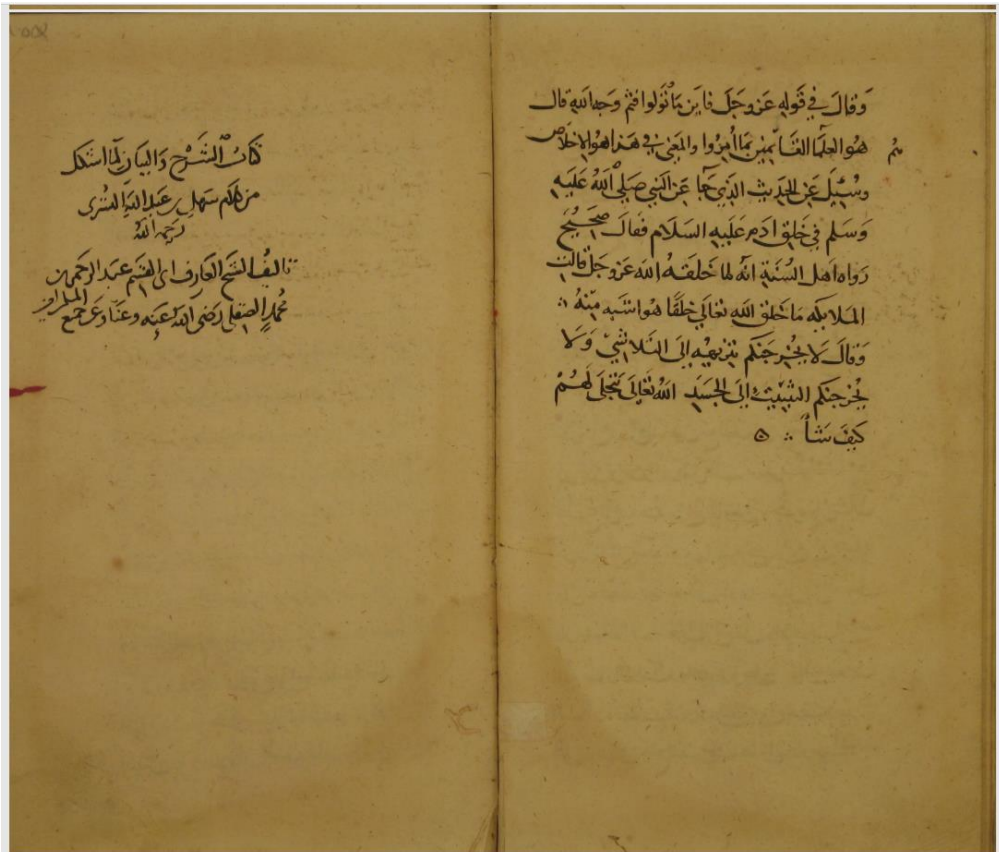 وَقالَ في قَولِهِ عَزوجَلَ فاَين مَا تُولوا فثم وَجه الله قال
هُوا العلما القَائِمين بما أمروا والمعنى في هذا هوا الاخلاص
وسُئِلَ عَن الحديث الذي جَا عَن النبي صَلى اللهُ عَلَيه
وَسَلم في خَلق ادم عَليه السَلام فقالَ صَحِيحٌ
رَواه اهل السُنَةِ انه لما خَلقَهُ الله عَز وجَل قالت
الملايكه مَا خَلق الله تعالى خلقًا هوا شبه مِنهُ
وَقالَ لَا يُخرجَنكم تنزيهيه إلى التلاشي وَلَا
يُخرجنكم التثبيت إلى الجسَد اللهُ تعَالى يتجلى لَهُمْ
كيفَ شَاءَ
كتابُ الشَرح وَالبيان لمَا اشكل
من كلام سَهل بن عَبد اللهِ التسترى
رَحمه الله
تاليف الشيخ العارف ابى القسم عَبد الرحمن بن
مُحمدٍ الصقلي رَضى اللهُ عَنه وعنا وعن جميع المسلمين